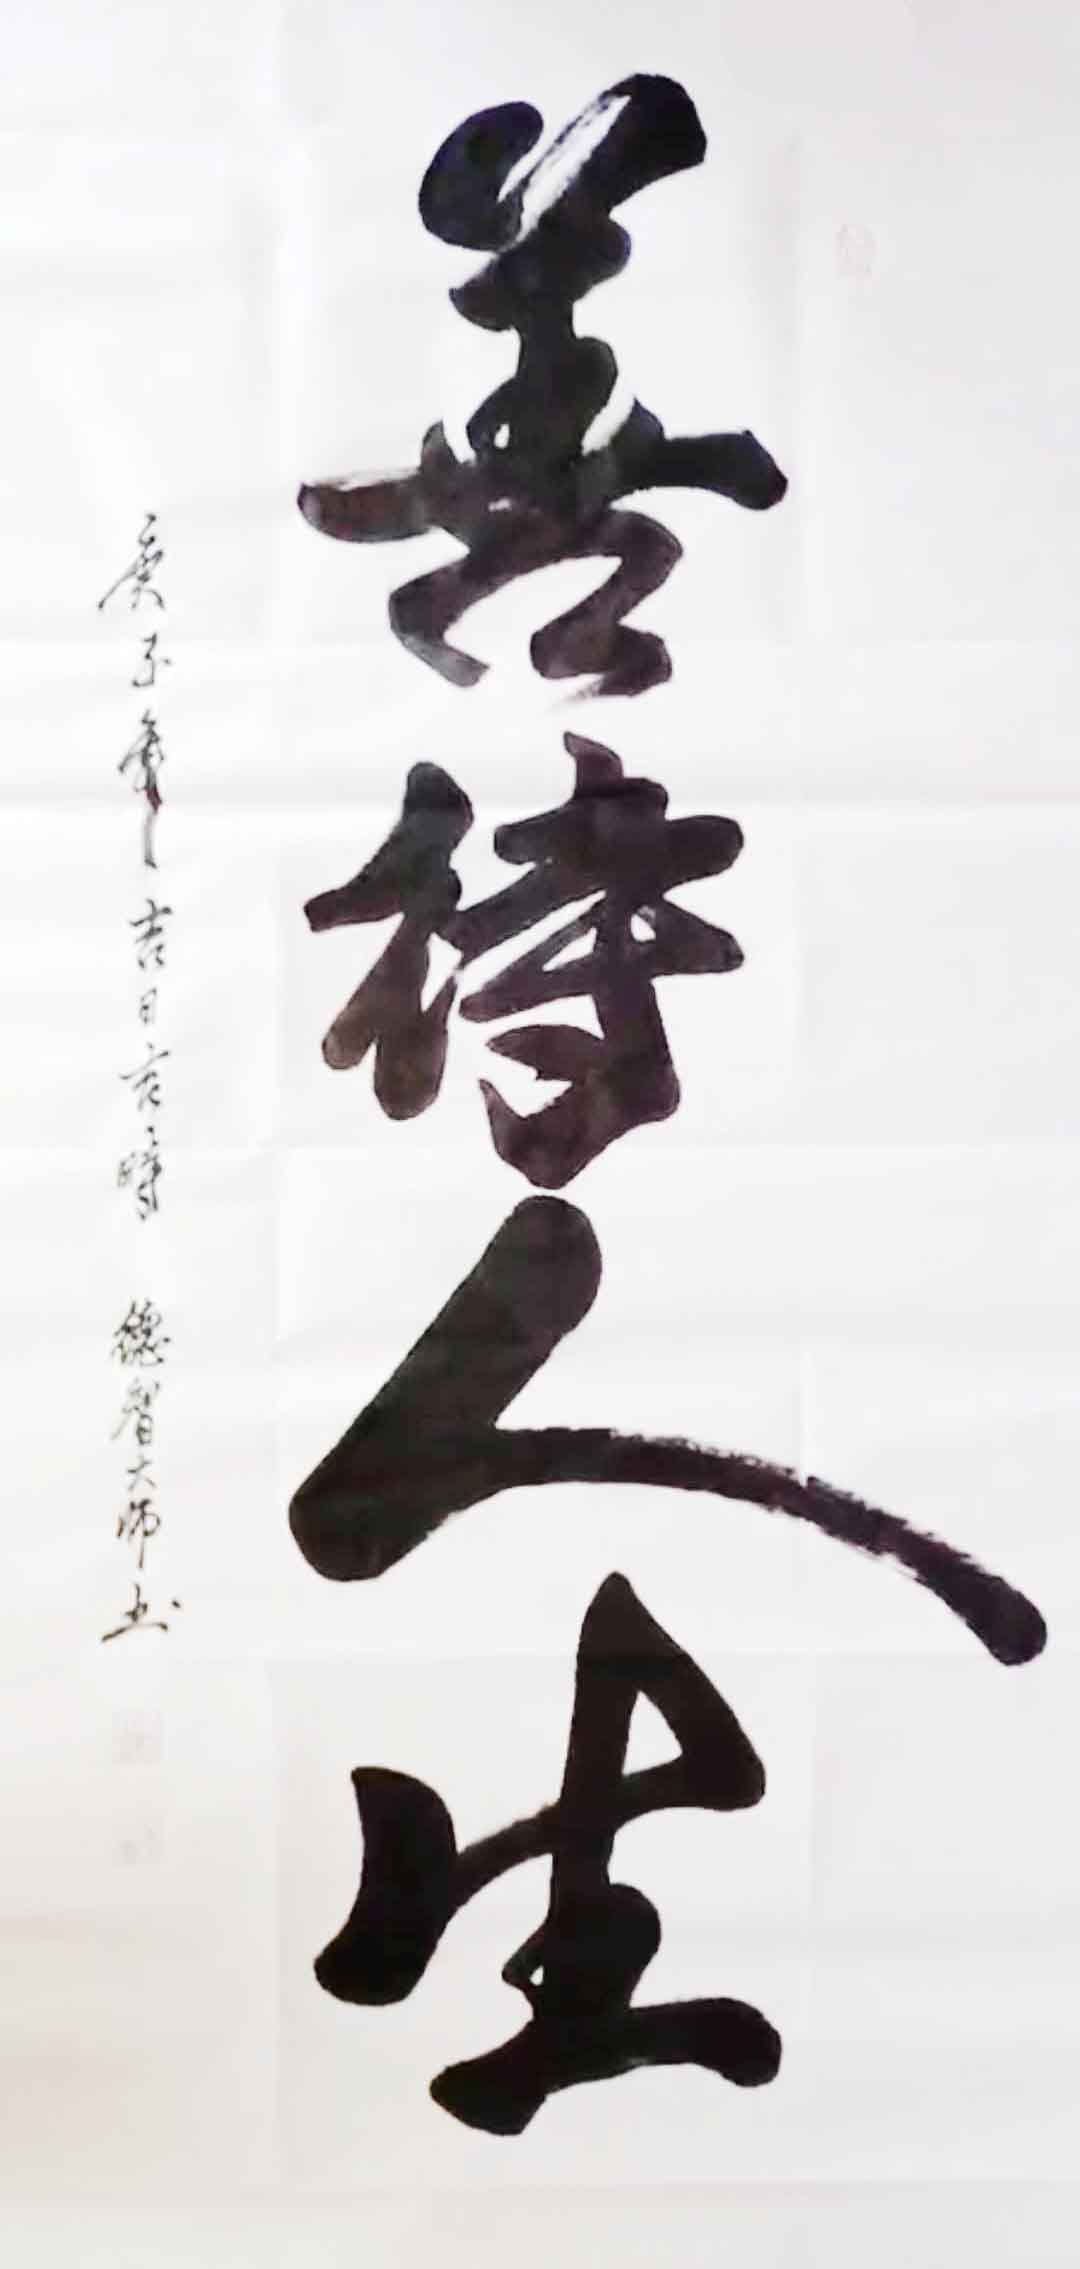 善待人生
庚子年吉日亥時 德智大师书